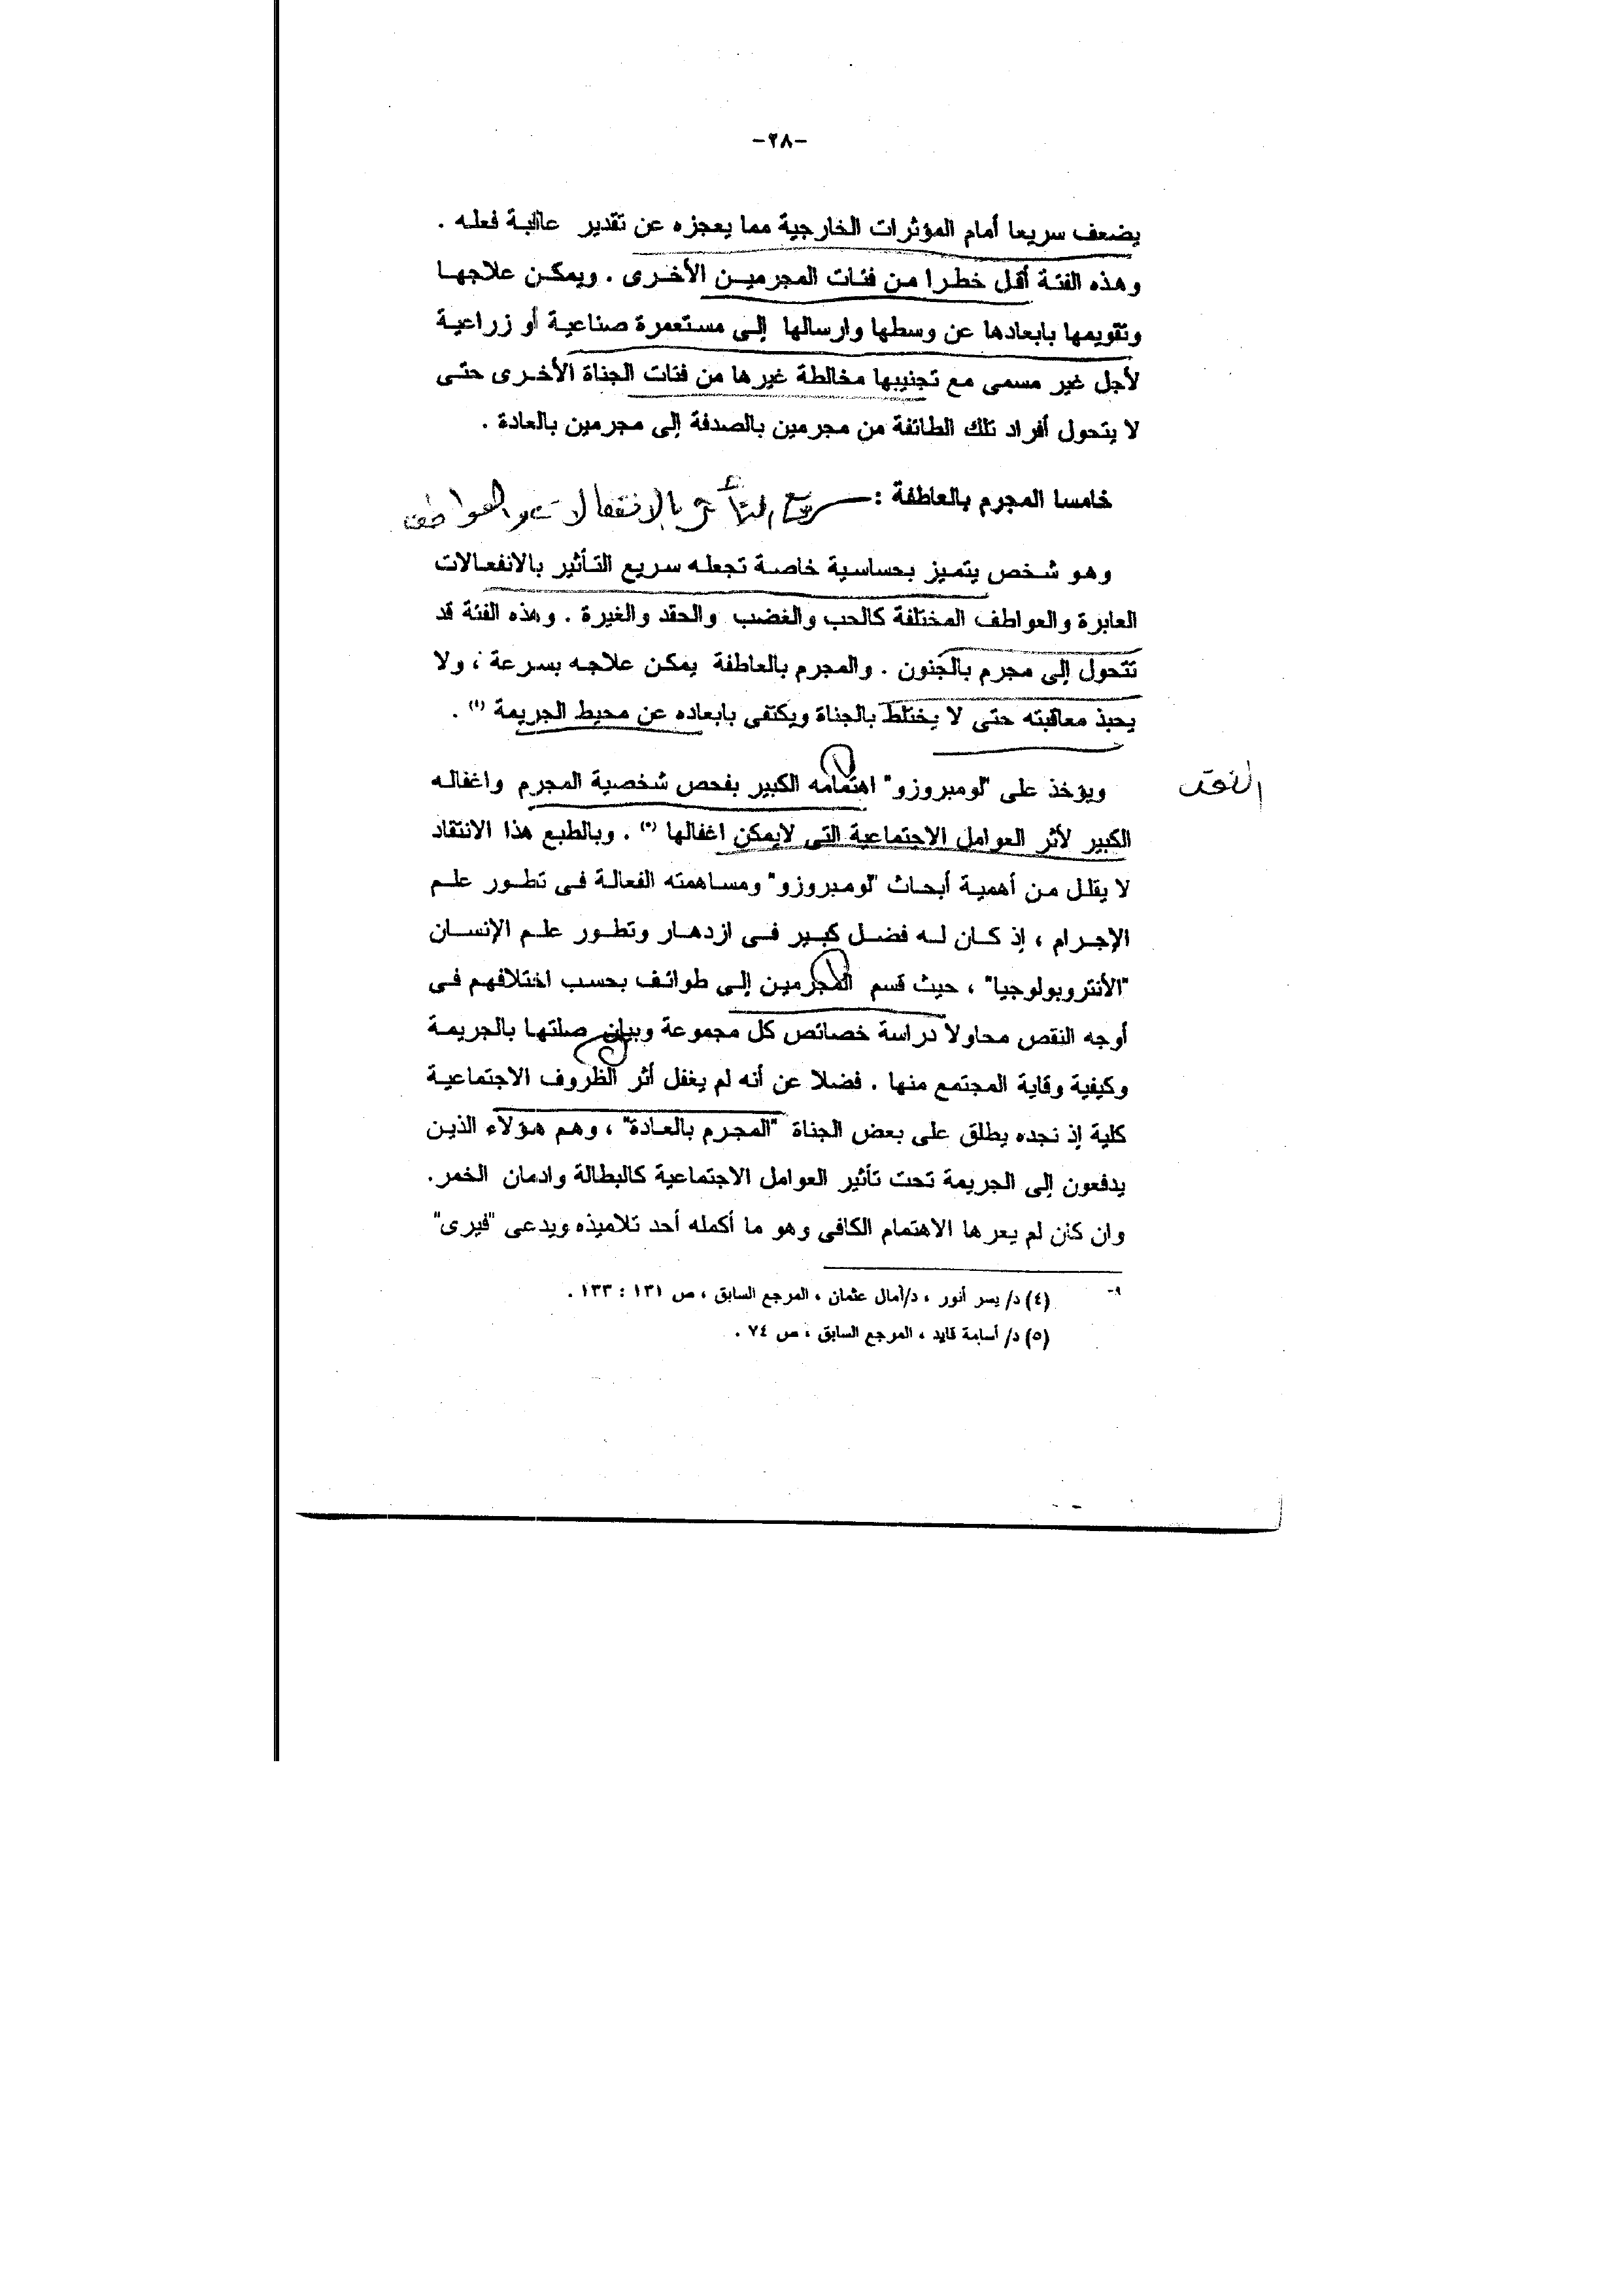 -٢٨-
يضعف سريعا أمام المؤثرات الخارجية مما يعجزه عن تقدير عاقبة فعله .
وهذه الفئة أقل خطرا من فئات المجرمين الأخرى . ويمكن علاجها
وتقويمها بابعادها عن وسطها وارسالها إلى مستعمرة صناعية أو زراعية
لأجل غير مسمى مع تجنيبها مخالطة غيرها من فئات الجناة الأخرى حتى
لا يتحول أفراد تلك الطائفة من مجرمين بالصدفة إلى مجرمين بالعادة .
خامسا المجرم بالعاطفة : سريع التأثر بالانفعالات والعواطف
وهو شخص يتميز بحساسية خاصة تجعله سريع التأثير بالانفعالات
العابرة والعواطف المختلفة كالحب والغضب والحقد والغيرة . وهذه الفئة قد
تتحول إلى مجرم بالجنون . والمجرم بالعاطفة يمكن علاجه بسرعة ، ولا
يحبذ معاقبته حتى لا يختلط بالجناة ويكتفى بابعاده عن محيط الجريمة (٤) .
النقد
ويؤخذ على "لومبروزو" اهتمامه الكبير بفحص شخصية المجرم واغفاله
الكبير لأثر العوامل الاجتماعية التى لايمكن اغفالها (٥) . وبالطبع هذا الانتقاد
لا يقلل من أهمية أبحاث "لومبروزو" ومساهمته الفعالة فى تطور علم
الإجرام ، إذ كان له فضل كبير فى ازدهار وتطور علم الإنسان
"الأنتروبولوجيا" ، حيث قسم المجرمين إلى طوائف بحسب اختلافهم فى
أوجه النقص محاولا دراسة خصائص كل مجموعة وبيان صلتها بالجريمة
وكيفية وقاية المجتمع منها . فضلا عن أنه لم يغفل أثر الظروف الاجتماعية
كلية إذ نجده يطلق على بعض الجناة "المجرم بالعادة" ، وهم هؤلاء الذين
يدفعون إلى الجريمة تحت تأثير العوامل الاجتماعية كالبطالة وادمان الخمر.
وان كان لم يعرها الاهتمام الكافى وهو ما أكمله أحد تلاميذه ويدعى "فيرى"
٩-
(٤) د/ يسر أنور ، د/أمال عثمان ، المرجع السابق ، ص ١٣١ : ١٣٣ .
(٥) د/ أسامة قايد ، المرجع السابق ، ص ٧٤ .